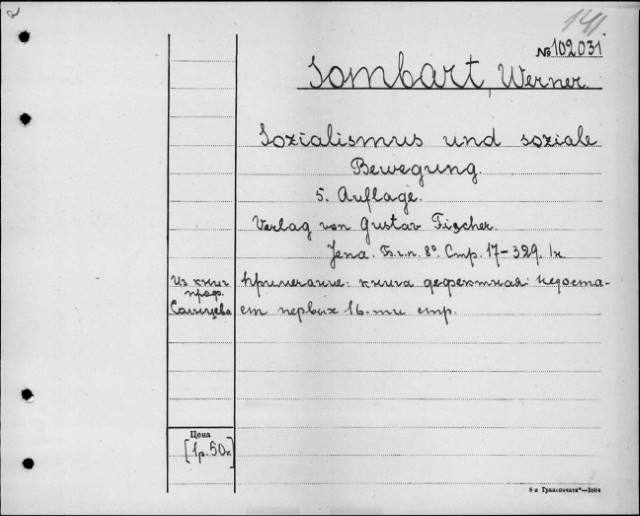 2
141
№ 102031
Sombart, Werner.
Sozialismus und soziale
Bewegung.
5. Auflage.
Verlag von Gustav Fischer.
Jena. Б.г.п. 8° Стр. 17-329. /н.
Из книг
проф.
Солнцева
Примечание: книга дефектная: недоста-
ет первых 16-ти стр.
Цена
[1р. 50к]